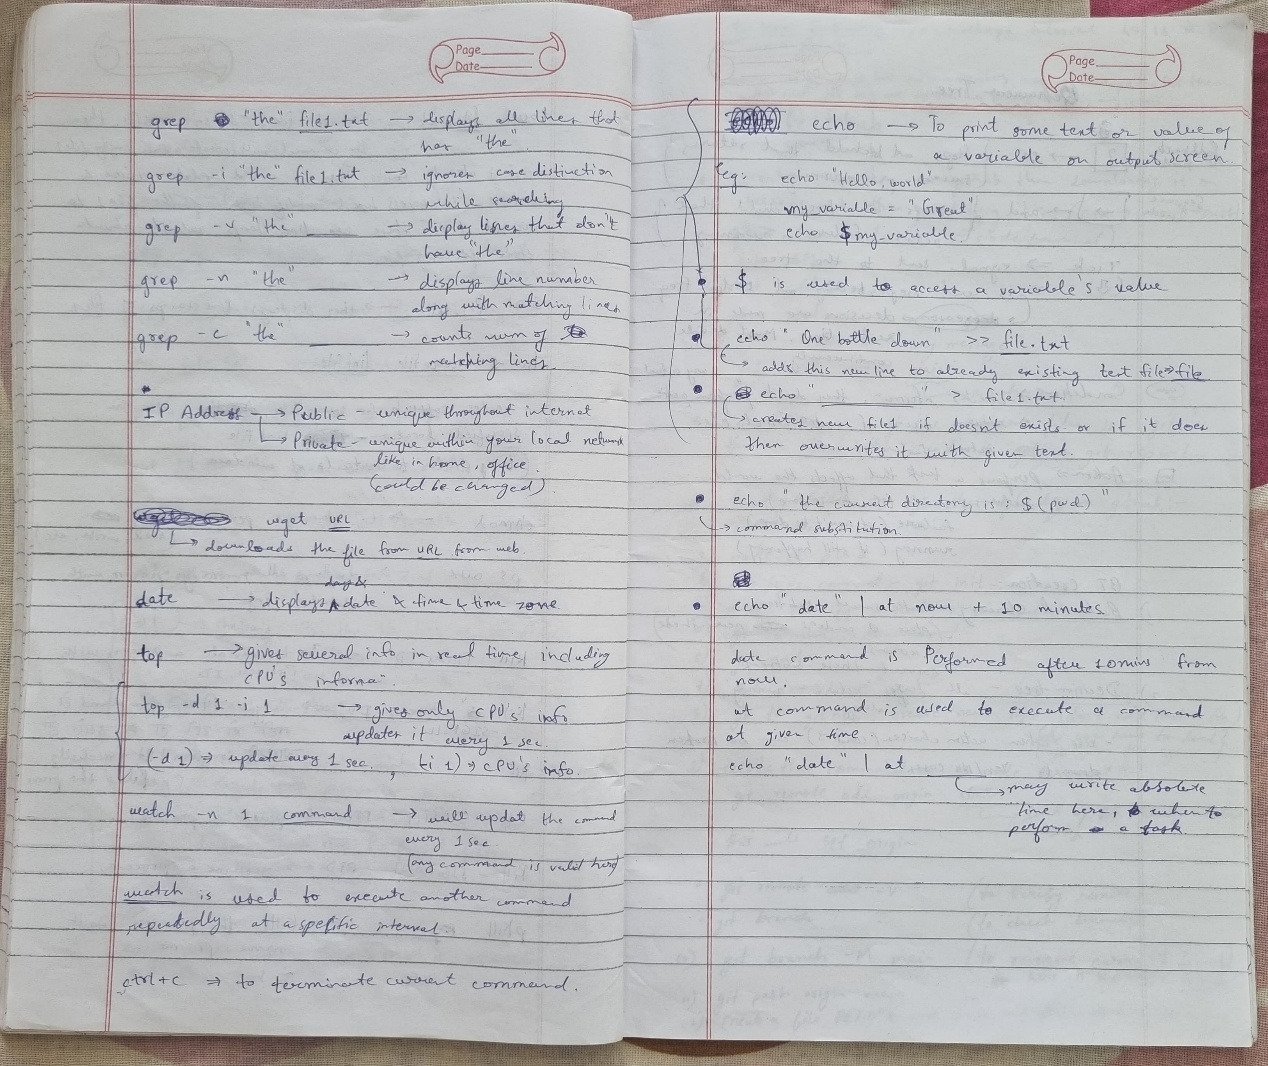 Page
Date
grep "the" file1.txt → displays all lines that
has "the"
grep -i "the" file1.txt → ignores case distinction
while searching
grep -v "the" ____ → display lines that don't
have "the"
grep -n "the" ____ → displays line number
along with matching lines
grep -c "the" ____ → counts num of
matching lines.
IP Address → Public - unique throughout internet
→ Private - unique within your local network
like in home, office.
(could be changed).
wget URL
→ downloads the file from URL from web.
days &
date → displays ∧ date & time & time zone
top → gives several info in real time, including
CPU's informa-.
top -d 1 -i 1 → gives only CPU's info
updates it every 1 sec.
(-d 1) → update every 1 sec. , (-i 1) → CPU's info.
watch -n 1 command → will updat the command
every 1 sec.
(any command is valid here)
watch is used to execute another command
repeatedly at a spefific interval.
ctrl+c ⇒ to terminate current command.
Page
Date
echo → To print some text or value of
a variable on output screen.
Eg: echo "Hello, world"
my_variable = "Great"
echo $my_variable.
• $ is used to access a variable's value
• echo "One bottle down" >> file.txt
→ adds this new line to already existing text file⇒file
• echo "____" > file1.txt.
→ creates new file1 if doesn't exists or if it does
then overwrites it with given text.
• echo "the current directory is: $(pwd)"
→ command substitution.
• echo "date" | at now + 10 minutes
date command is Performed after 10mins from
now.
at command is used to execute a command
at given time
echo "date" | at ____
→ may write absolute
time here, when to
perform a task